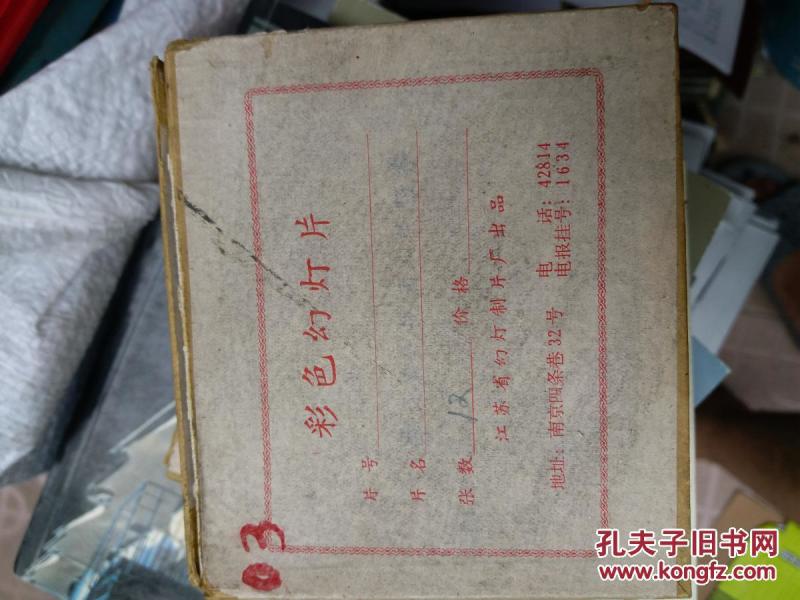 彩色幻灯片
片号
片名
张数 12 价格
江苏省幻灯制片厂出品
地址：南京四条巷32号 电话：42814
电报挂号：1634
03
孔夫子旧书网
www.kongfz.com